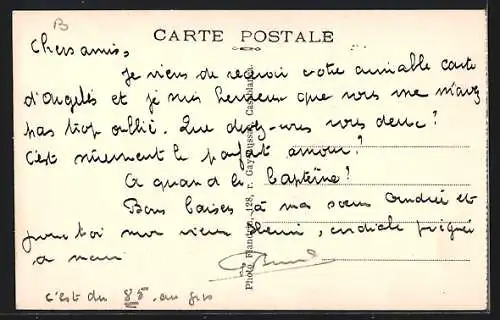 B
CARTE POSTALE
Chers amis,
Je viens de recevoir votre aimable carte
d'Angelès et je suis heureux que vous ne m'avez
pas trop oublié. Que devez-vous vous deux ?
C'est sûrement le parfait amour !
A quand le Baptême !
Bons baisers à ma sœur Andrée et
pour toi mon vieux cordiale poignée
de main
Photo Flandrin, 128, r. Gay-Lussac, Casablanca
c'est du 85. au gros